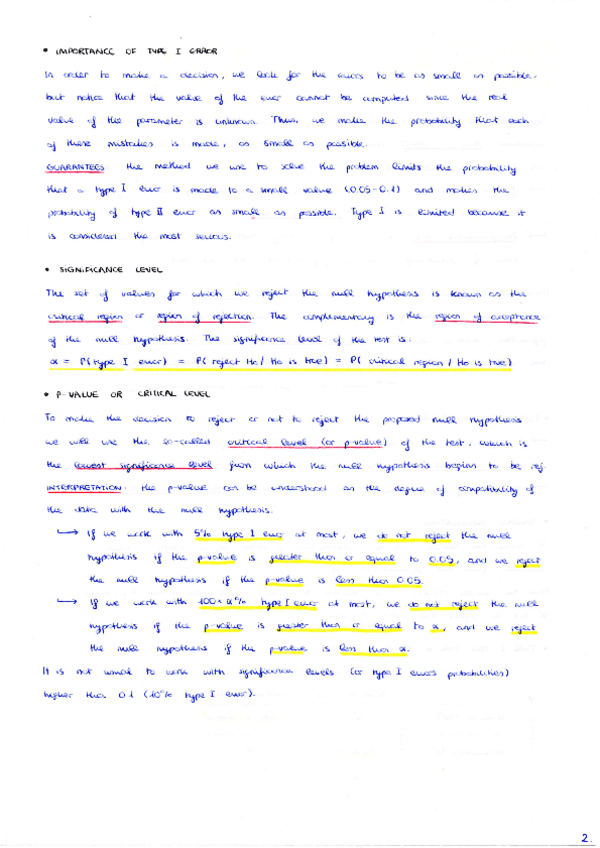 • IMPORTANCE OF TYPE I ERROR
In order to make a decision, we look for the errors to be as small as possible.
but notice that the value of the error cannot be computed since the real
value of the parameter is unknown. Thus, we make the probability that each
of these mistakes is made, as small as possible.
GUARANTEES the method we use to solve the problem limits the probability
that a type I error is made to a small value (0.05-0.1) and makes the
probability of type II error as small as possible. Type I is limited because it
is considered the most serious.
• SIGNIFICANCE LEVEL
The set of values for which we reject the null hypothesis is known as the
critical region or region of rejection. The complementary is the region of acceptance
of the null hypothesis. The significance level of the test is:
α = P(type I error) = P(reject H₀/H₀ is true) = P(critical region/H₀ is true)
• P-VALUE OR CRITICAL LEVEL
To make the decision to reject or not to reject the proposed null hypothesis
we will use the so-called critical level (or p-value) of the test, which is
the lowest significance level from which the null hypothesis begins to be rej.
INTERPRETATION: the p-value can be understood as the degree of compatibility of
the data with the null hypothesis.
→ If we work with 5% type I error at most, we do not reject the null
hypothesis if the p-value is greater than or equal to 0.05, and we reject
the null hypothesis if the p-value is less than 0.05.
→ If we work with 100×α% type I error at most, we do not reject the null
hypothesis if the p-value is greater than or equal to α, and we reject
the null hypothesis if the p-value is less than α.
It is not usual to work with significance levels (or type I errors probabilities)
higher than 0.1 (10% type I error).
2.